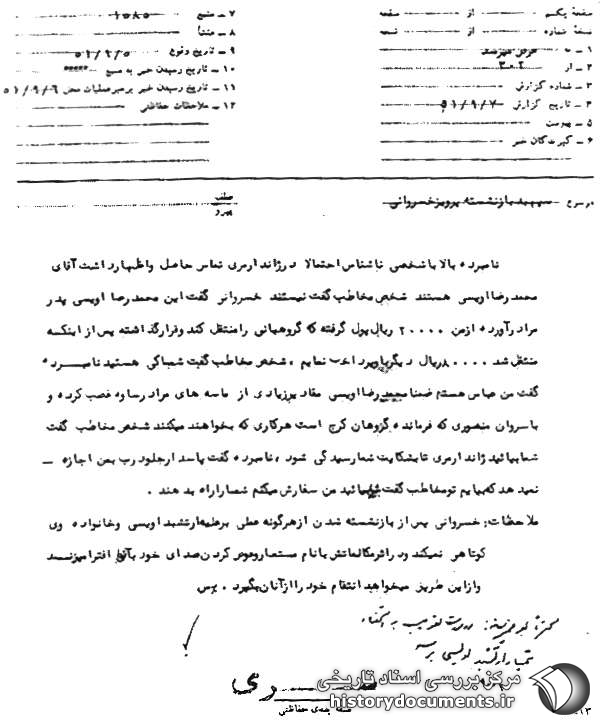 صفحهٔ یکم از صفحه
نسخهٔ شماره از نسخه
۱ ـ به
۲ ـ از ۳۰۲
۳ ـ شماره گزارش
۴ ـ تاریخ گزارش ۵۱/۹/۷
۵ ـ پیوست
۶ ـ گیرندگان خبر
۷ ـ منبع ۱۰۸۵
۸ ـ منشأ
۹ ـ تاریخ وقوع ۵۱/۹/۵
۱۰ ـ تاریخ رسیدن خبر به منبع *****
۱۱ ـ تاریخ رسیدن خبر برهبر عملیات محل ۵۱/۹/۶
۱۲ ـ ملاحظات حفاظتی
موضوع سپهبد بازنشسته پرویز خسروانی
عطف
پیرو
نامبرده بالا با شخصی ناشناس احتمالا در ژاندارمری تماس حاصل و اظهار داشت آقای
محمد رضا اویسی هستند شخص مخاطب گفت نیستند خسروانی گفت این محمد رضا اویسی پدر
مراد رآورده از من ۲۰۰۰۰ ریال پول گرفته که گروهبانی را منتقل کند و قرار گذاشته پس از اینکه
منتقل شد ۸۰۰۰۰ ریال دیگر باو پرداخت نمایم ، شخص مخاطب گفت شما کی هستید نامبرده
گفت من عباس هستم ضمنا محمد رضا اویسی مقادیر زیادی از ماسه های مراد رساوه غصب کرده و
با سروان منصوری که فرمانده گروهان کرج است هر کاری که بخواهند میکنند شخص مخاطب گفت
شما بیائید ژاندارمری تا بشکایت شما رسیدگی شود ، نامبرده گفت پاسدار جلو درب بمن اجازه ـ
نمیدهد که بیایم تو مخاطب گفت شما بیائید من سفارش میکنم شما را راه بدهند .
ملاحظات: خسروانی پس از بازنشسته شدن از هرگونه عملی برعلیه ارتشبد اویسی و خانواده وی
کوتاهی نمیکند و در اثر مکالماتش با نام مستعار و عوض کردن صدای خود بآنها افترا میزنند
و از این طریق میخواهد انتقام خود را از آنان بگیرد . پرس
مرکز بررسی اسناد تاریخی
historydocuments.ir
طبقه بندی حفاظتی
۱۳